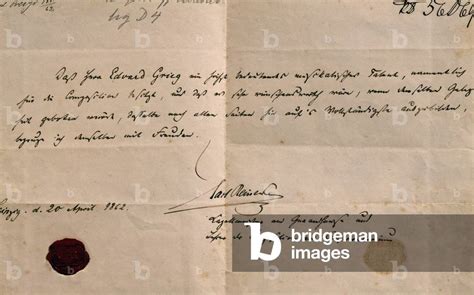 Daß Herr Edvard Grieg ein höchst bedeutendes musikalisches Talent, namentlich
für die Composition besitzt, und daß es sehr wünschenswerth wäre, wenn demselben Gelegen
heit geboten würde, dasselbe nach allen Seiten hin auf's Vollständigste auszubilden,
bezeuge ich demselben mit Freuden.
Leipzig, d. 20 April 1862.
Carl Reinecke
Kapellmeister am Gewandhause und
b bridgeman
images